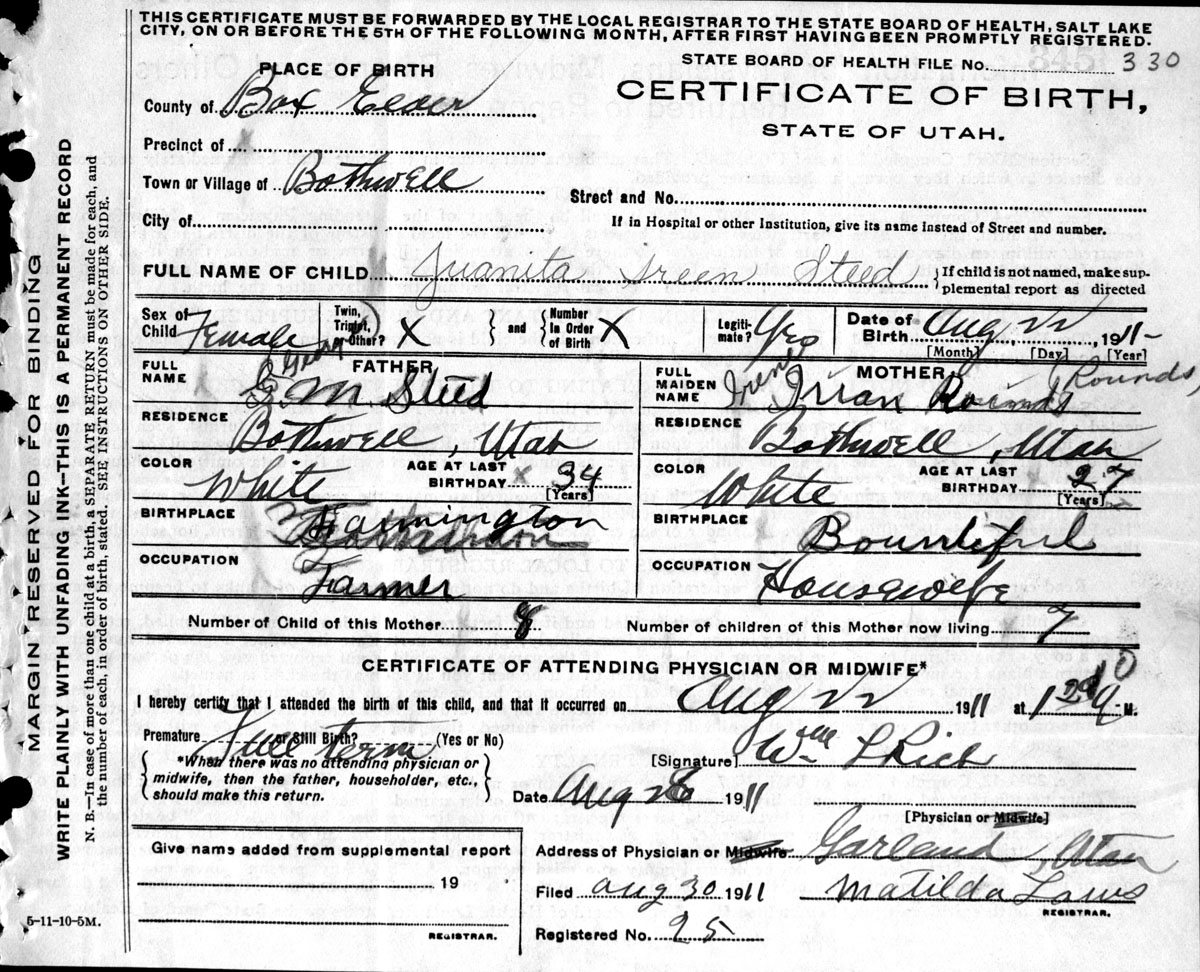 THIS CERTIFICATE MUST BE FORWARDED BY THE LOCAL REGISTRAR TO THE STATE BOARD OF HEALTH, SALT LAKE
CITY, ON OR BEFORE THE 5TH OF THE FOLLOWING MONTH, AFTER FIRST HAVING BEEN PROMPTLY REGISTERED.
STATE BOARD OF HEALTH FILE No. 330
PLACE OF BIRTH
CERTIFICATE OF BIRTH,
STATE OF UTAH.
County of Box Elder
Precinct of
Town or Village of Bothwell
Street and No.
City of
If in Hospital or other Institution, give its name instead of Street and number.
FULL NAME OF CHILD Juanita Ireen Steed { If child is not named, make sup-
plemental report as directed
Sex of Child Female
Twin, Triplet, or Other? X } and { Number in Order of Birth X
Legiti- mate? Yes
Date of Birth Aug 22 1911
[Month] [Day] [Year]
FULL NAME FATHER
G. M. Steed
FULL MAIDEN NAME MOTHER
Irene Irian Rounds Rounds
RESIDENCE Bothwell, Utah
RESIDENCE Bothwell, Utah
COLOR White AGE AT LAST BIRTHDAY x 34 [Years]
COLOR White AGE AT LAST BIRTHDAY x 27 [Years]
BIRTHPLACE Farmington
BIRTHPLACE Bountiful
OCCUPATION Farmer
OCCUPATION Housewife
Number of Child of this Mother 8
Number of children of this Mother now living 7
CERTIFICATE OF ATTENDING PHYSICIAN OR MIDWIFE*
I hereby certify that I attended the birth of this child, and that it occurred on Aug 22 1911 at M.
Premature or Still Birth? (Yes or No) Full term
*When there was no attending physician or
midwife, then the father, householder, etc.,
should make this return.
[Signature] Wm L Rich
Date Aug 26 1911
[Physician or Midwife]
Give name added from supplemental report
19
REGISTRAR.
Address of Physician or Midwife Garland, Utah
Filed Aug 30 1911 Matilda Laws
REGISTRAR.
Registered No. 25
5-11-10-5M.
MARGIN RESERVED FOR BINDING
WRITE PLAINLY WITH UNFADING INK–THIS IS A PERMANENT RECORD
N. B.–In case of more than one child at a birth, a SEPARATE RETURN must be made for each, and
the number of each, in order of birth, stated. SEE INSTRUCTIONS ON OTHER SIDE.